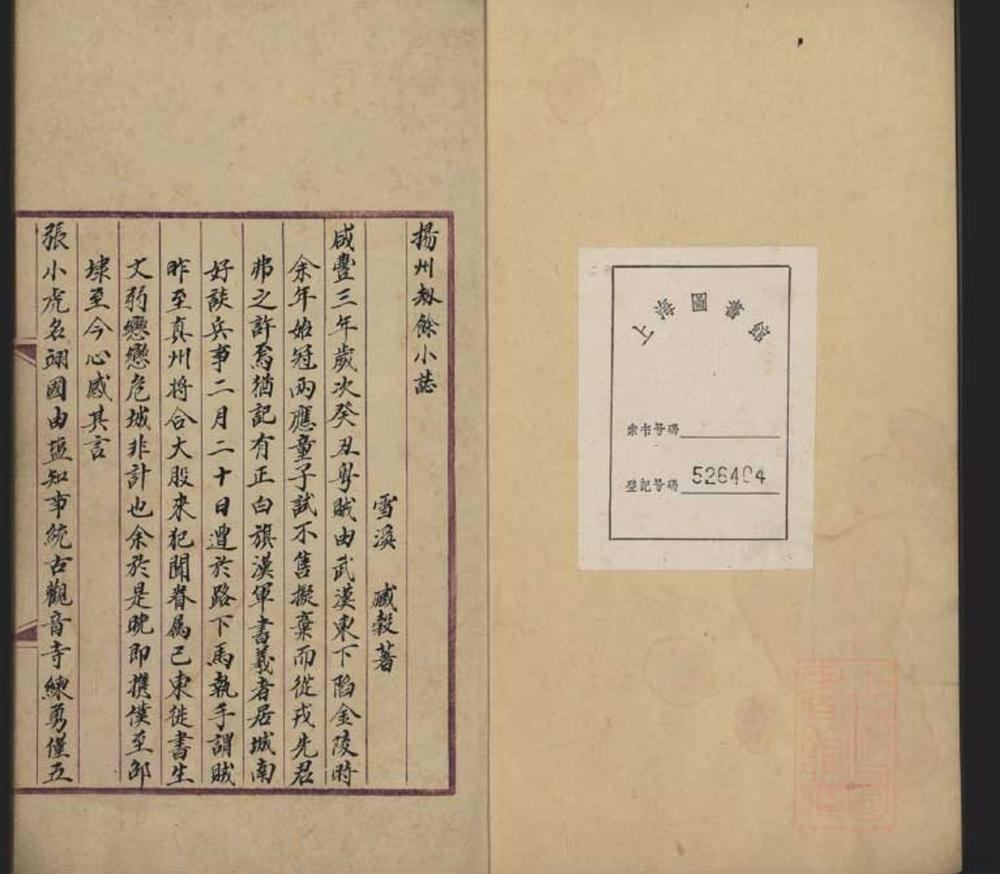 上海圖書館
索书号碼
登記号碼 526404
揚州劫餘小誌
雪溪 臧穀著
咸豐三年歲次癸丑粤賊由武漢東下陷金陵時
余年始冠兩應童子試不售擬棄而從戎先君
弗之許焉猶記有正白旗漢軍書義者居城南
好談兵事二月二十日遭於路下馬執手謂賊
昨至真州将合大股來犯聞眷属已東徙書生
文弱戀戀危城非計也余於是晚即携僕至邵
埭至今心感其言
張小虎名翊國由鹽知事統古觀音寺練勇僅五